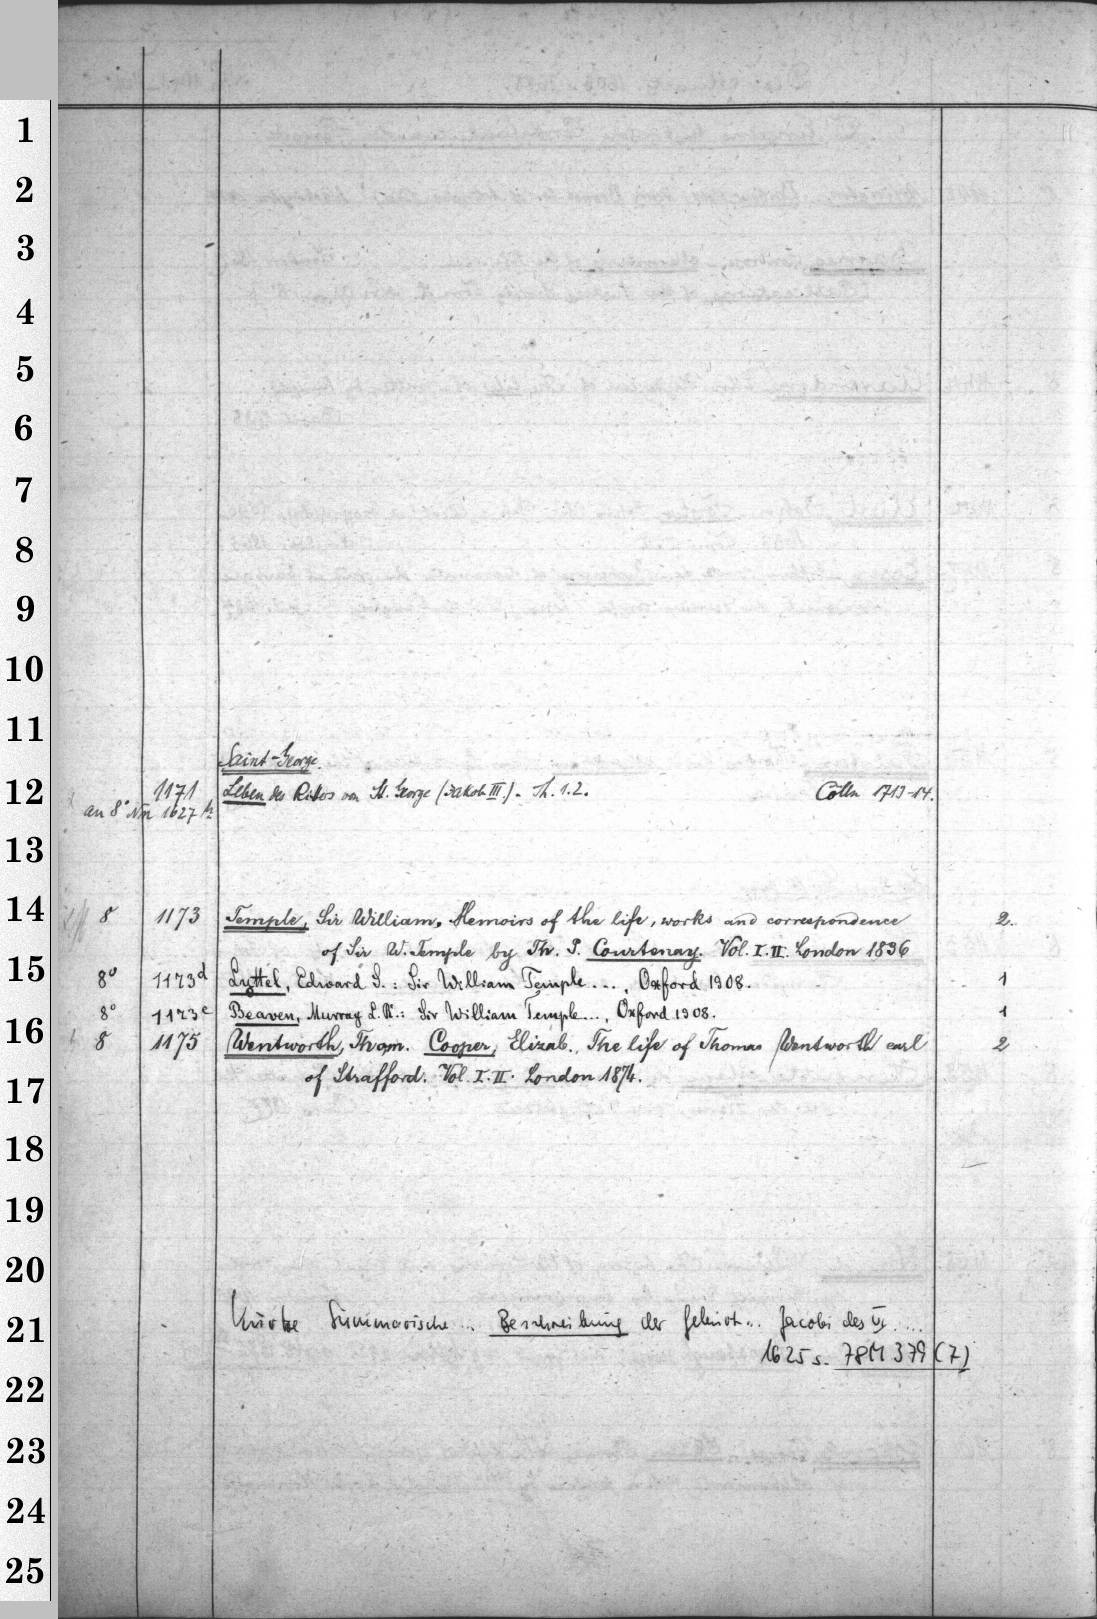 1
2
3
4
5
6
7
8
9
10
11
Saint-George.
12 1171 Leben des Ritters von St. George (Jakob III.). Th. 1.2. Cölln 1713-14.
an 8° Nn 1627
13
14 8 1173 Temple, Sir William, Memoirs of the life, works and correspondence 2.
of Sir W. Temple by Th. P. Courtenay. Vol. I. II. London 1836
15 8° 1173d Lyttel, Edward S.: Sir William Temple ...., Oxford 1908. 1
8° 1173e Beaven, Murray L. R.: Sir William Temple..., Oxford 1908. 1
16 8 1175 Wentworth, Thom. Cooper, Elizab., The life of Thomas Wentworth earl 2
17 of Strafford. Vol. I. II. London 1874.
18
19
20
21 Kurtze Summarische ... Beschreibung der Geburt... Jacobi des VI. ...
1625 s. 78 M 379 (7)
22
23
24
25